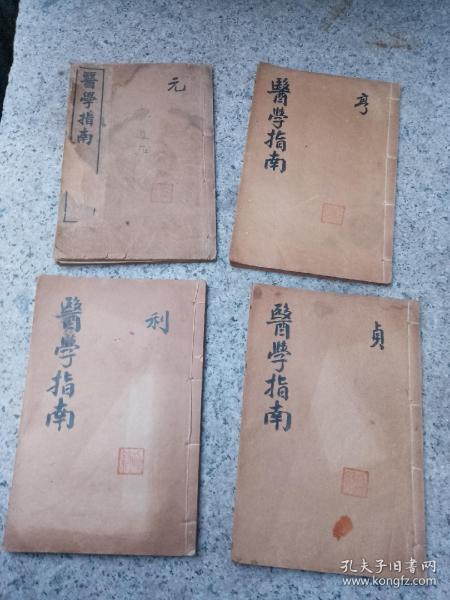 醫學指南
元
醫學指南
亨
醫學指南
利
醫學指南
貞
孔夫子旧书网
www.kongfz.com